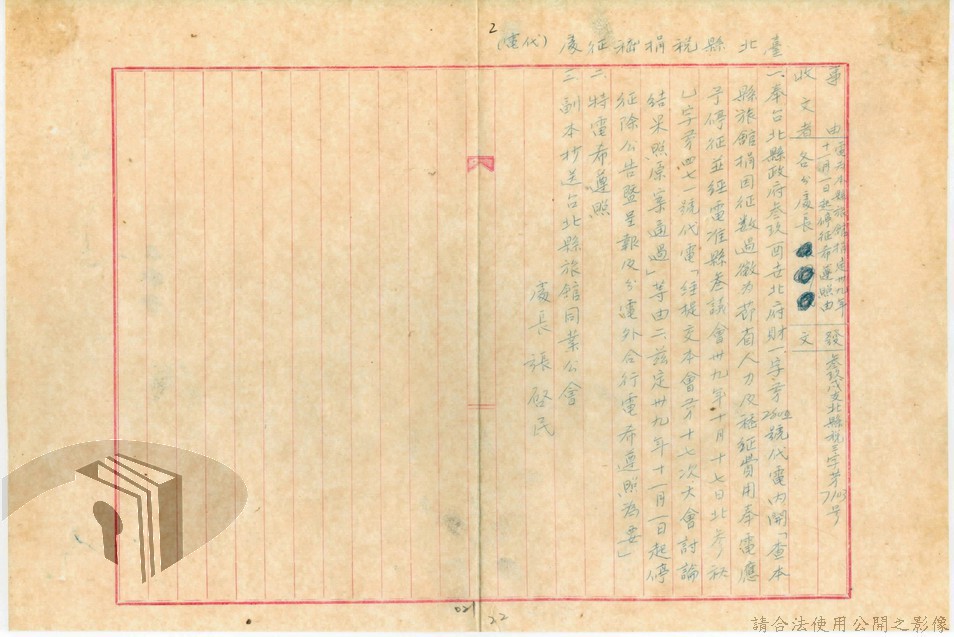 2
臺北縣稅捐稽征處(代電)
事由 電為本縣旅館捐定卅九年
十一月一日起停征希遵照由
收文者 各分處長
發文 北縣稅三字第7103号
一、奉台北縣政府叁玖酉世北府財一字第號代電內開「查本
縣旅館捐因征數過微為節省人力及稽征費用奉電應
予停征並經電准縣參議會卅九年十月十七日北參秋
乙字第四七一號代電「經提交本會第十七次大會討論
結果照原案通過」等由二、茲定卅九年十一月一日起停
征除公告暨呈報及分電外合行電希遵照為要」
二、特電希遵照
三、副本抄送台北縣旅館同業公會
處長 張啓民
021
22
請合法使用公開之影像